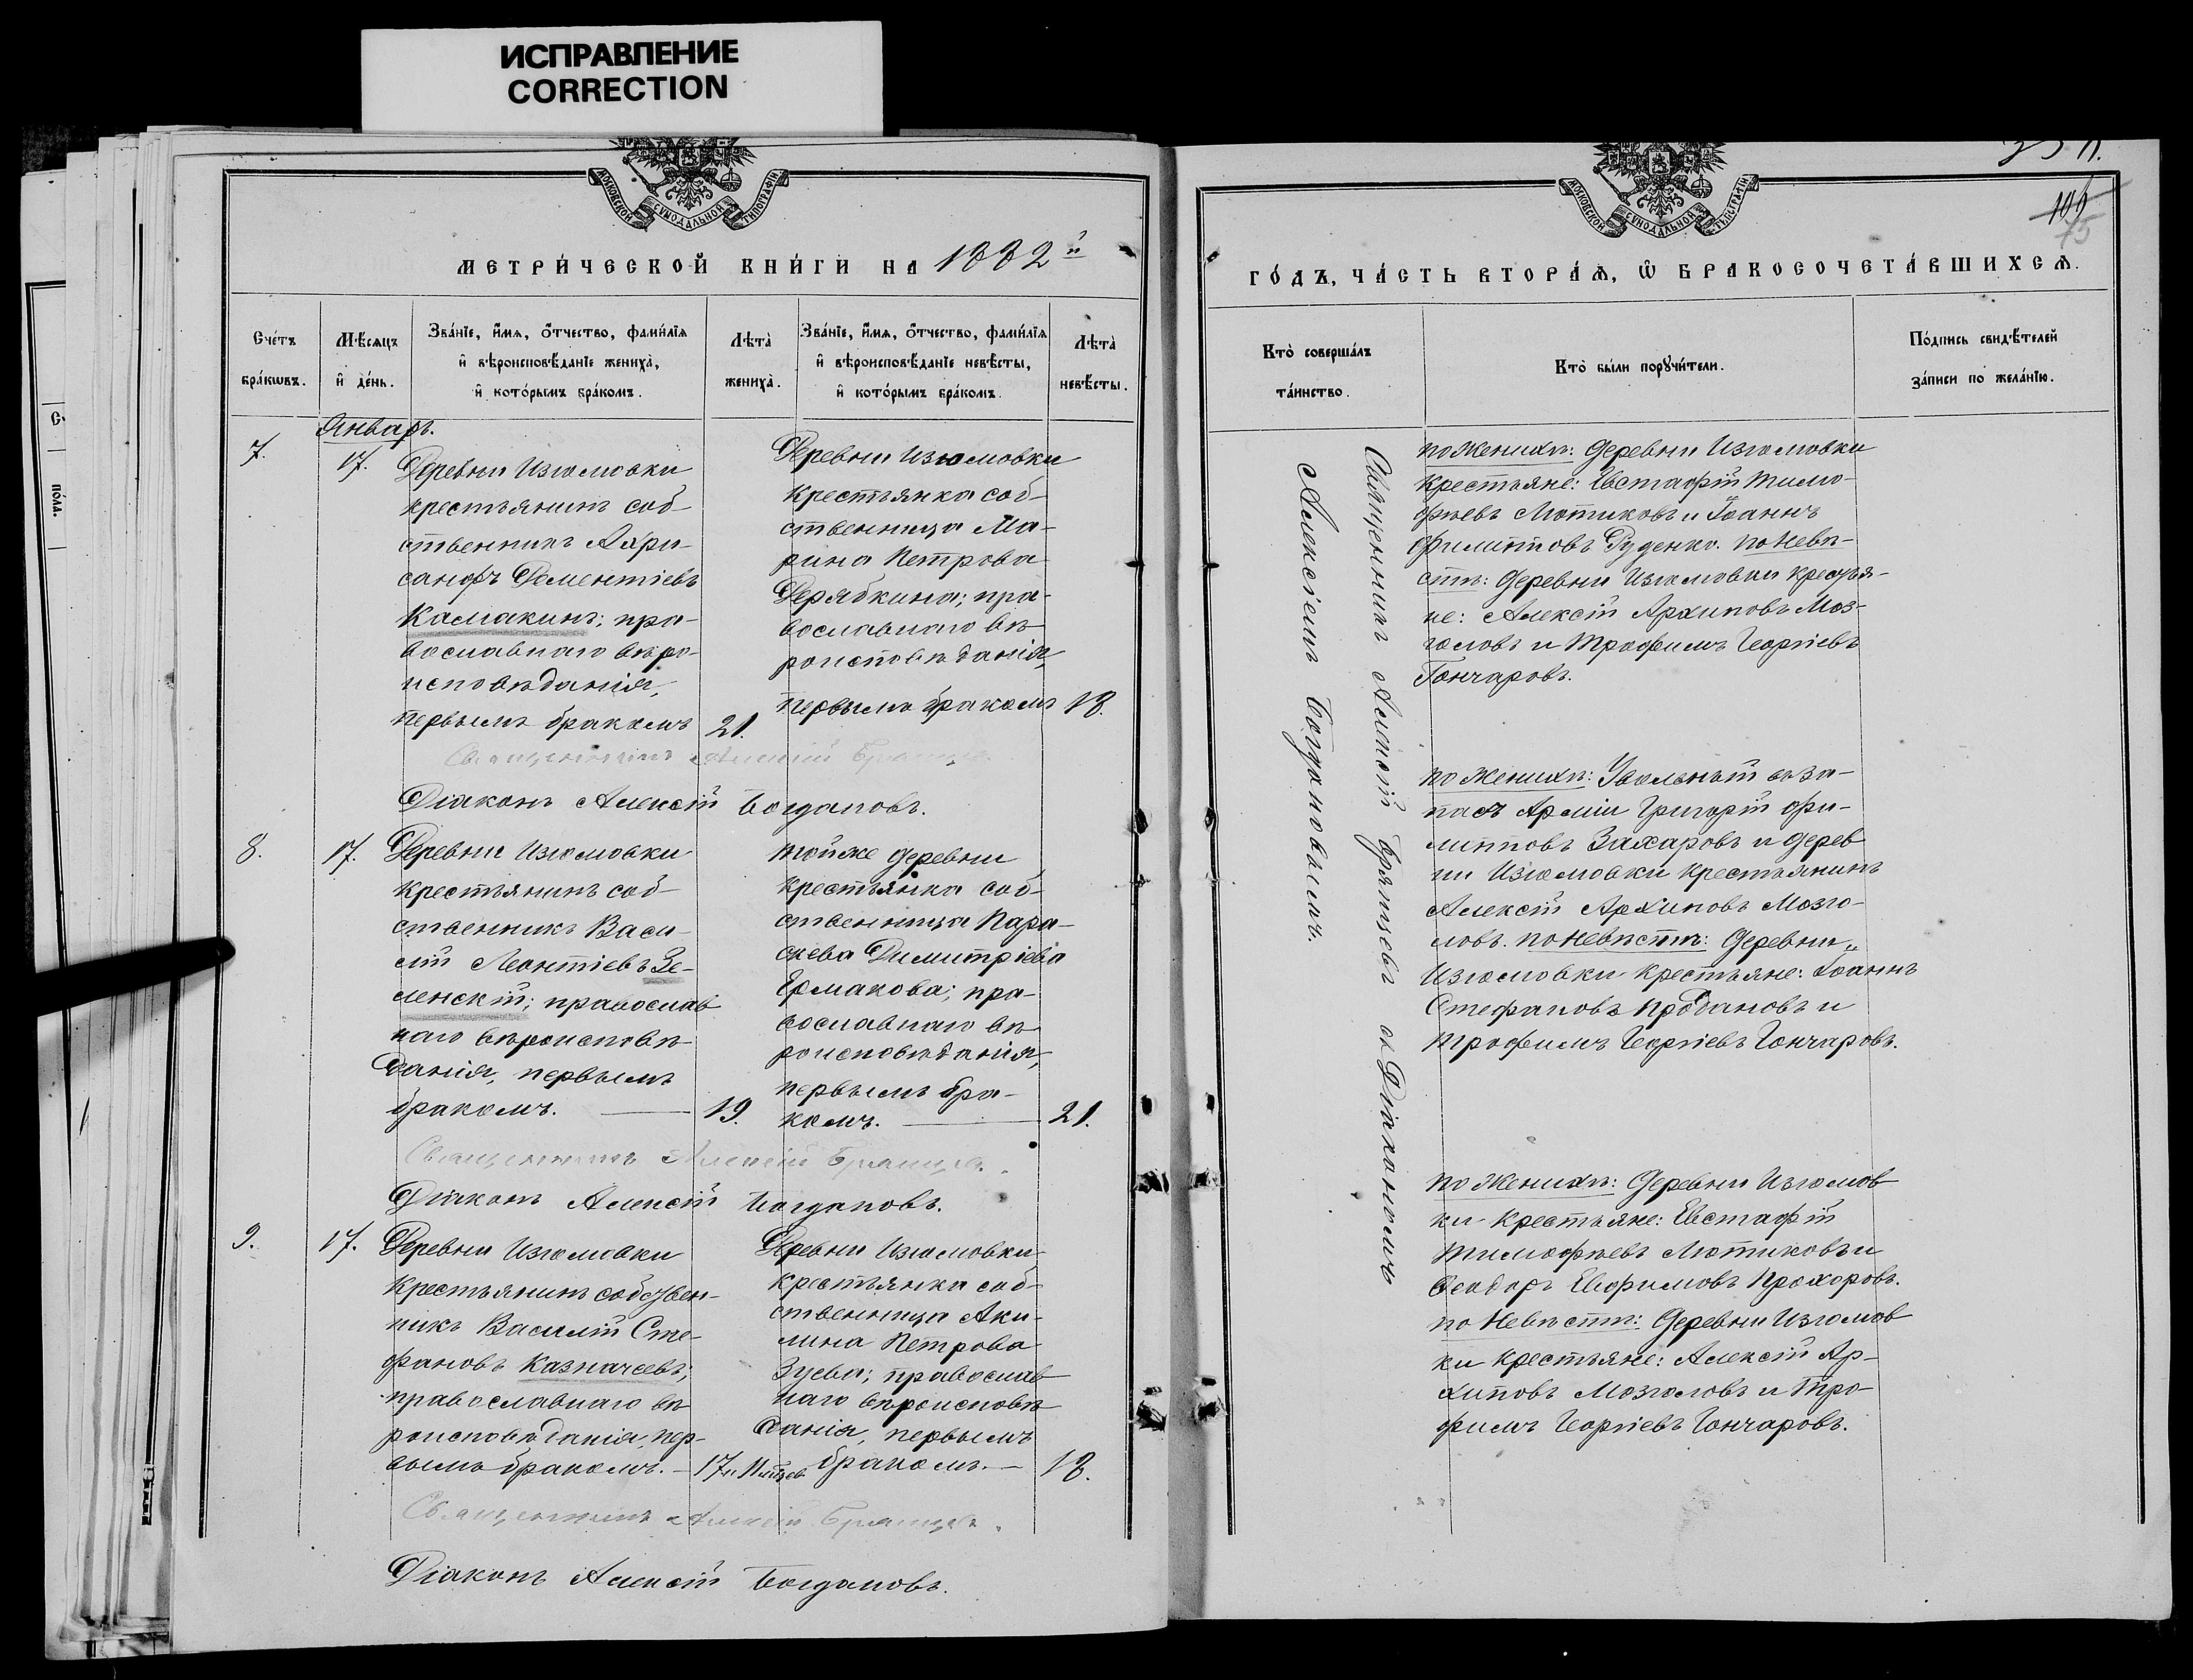 ИСПРАВЛЕНИЕ
CORRECTION
МОСКОВСКОЙ СѴНОДАЛЬНОЙ ТИПОГРАФІИ
МЕТРИ́ЧЕСКОЙ КНИ́ГИ НА 1882й
Сче́тъ бра́кωвъ.
Мѣ́сяцъ и҆ де́нь.
Зва́нїе, и҆́мѧ, ѻ҆́тчество, фами́лїѧ
и҆ вѣроисповѣ́данїе жениха̀,
и҆ кото́рымъ бра́комъ.
Лѣта̀ жениха̀.
Зва́нїе, и҆́мѧ, ѻ҆́тчество, фами́лїѧ
и҆ вѣроисповѣ́данїе невѣ́сты,
и҆ кото́рымъ бра́комъ.
Лѣта̀ невѣ́сты.
Январь.
7.
17.
Деревни Изюмовки
крестьянинъ соб-
ственникъ Ахри-
санфъ Дементіевъ
Камакинъ; пра-
вославнаго вѣро-
исповѣданія,
первымъ бракомъ
21.
Деревни Изюмовки
крестьянка соб-
ственница Ма-
рина Петрова
Дерябкина; пра-
вославнаго вѣ-
роисповѣданія,
первымъ бракомъ
18.
Священникъ Алексій Брянцевъ
Діаконъ Алексій Богдановъ.
8.
17.
Деревни Изюмовки
крестьянинъ соб-
ственникъ Васи-
лій Леонтіевъ Зе-
ленскій; православ
наго вѣроисповѣ-
данія, первымъ
бракомъ.
19.
тойже деревни
крестьянка соб-
ственница Пара-
скева Димитріева
Ермакова; пра-
вославнаго вѣ-
роисповѣданія,
первымъ бра-
комъ.
21.
Священникъ Алексій Брянцевъ.
Діаконъ Алексій Богдановъ.
9.
17.
Деревни Изюмовки
Крестьянинъ собствен-
никъ Василій Сте-
фановъ Казначеевъ;
православнаго вѣ-
роисповѣданія, пер-
вымъ бракомъ.
17
Деревни Изюмовки
крестьянка соб-
ственница Аки-
лина Петрова
Зуева; православ
наго вѣроисповѣ
данія, первымъ
бракомъ.
18.
Священникъ Алексій Брянцевъ.
Діаконъ Алексій Богдановъ.
МОСКОВСКОЙ СѴНОДАЛЬНОЙ ТИПОГРАФІИ
75
ГО́ДЪ, ЧА́СТЬ ВТОРА́Ѧ, Ѽ БРАКОСОЧЕТА́ВШИХСѦ.
Кто̀ соверша́лъ та́инство.
Кто̀ бы́ли порꙋчи́тели.
По́дпись свидѣ́телей за́писи по жела́нїю.
Священникъ Алексій Брянцевъ съ Діакономъ
Алексіемъ Богдановымъ.
по женихѣ: Деревни Изюмовки
Крестьяне: Евстафій Тимо-
фѣевъ Лютиковъ и Іоаннъ
Филипповъ Руденко. по невѣ-
стѣ: Деревни Изюмовки крестья-
не: Алексій Архиповъ Моз-
головъ и Трофимъ Георгіевъ
Гончаровъ.
по женихѣ: Уволеный въ за-
пасъ Арміи Григорій Фи-
липповъ Захаровъ и дерев
ни Изюмовки крестьянинъ
Алексій Архиповъ Мозго-
ловъ. по невѣстѣ: Деревни
Изюмовки крестьяне: Іоаннъ
Стефановъ Продановъ и
Трофимъ Георгіевъ Гончаровъ.
по женихѣ: Деревни Изюмов
ки Крестьяне: Евстафій
Тимофѣевъ Лютиковъ и
Ѳеодоръ Евфимовъ Прохоровъ.
по невѣстѣ: Деревни Изюмов
ки крестьяне: Алексій Ар-
хиповъ Мозголовъ и Тро-
фимъ Георгіевъ Гончаровъ.